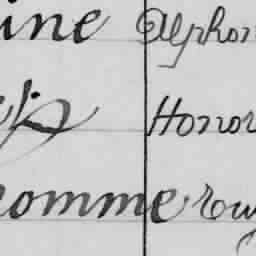 ine Alphon
Honor
omme Eug